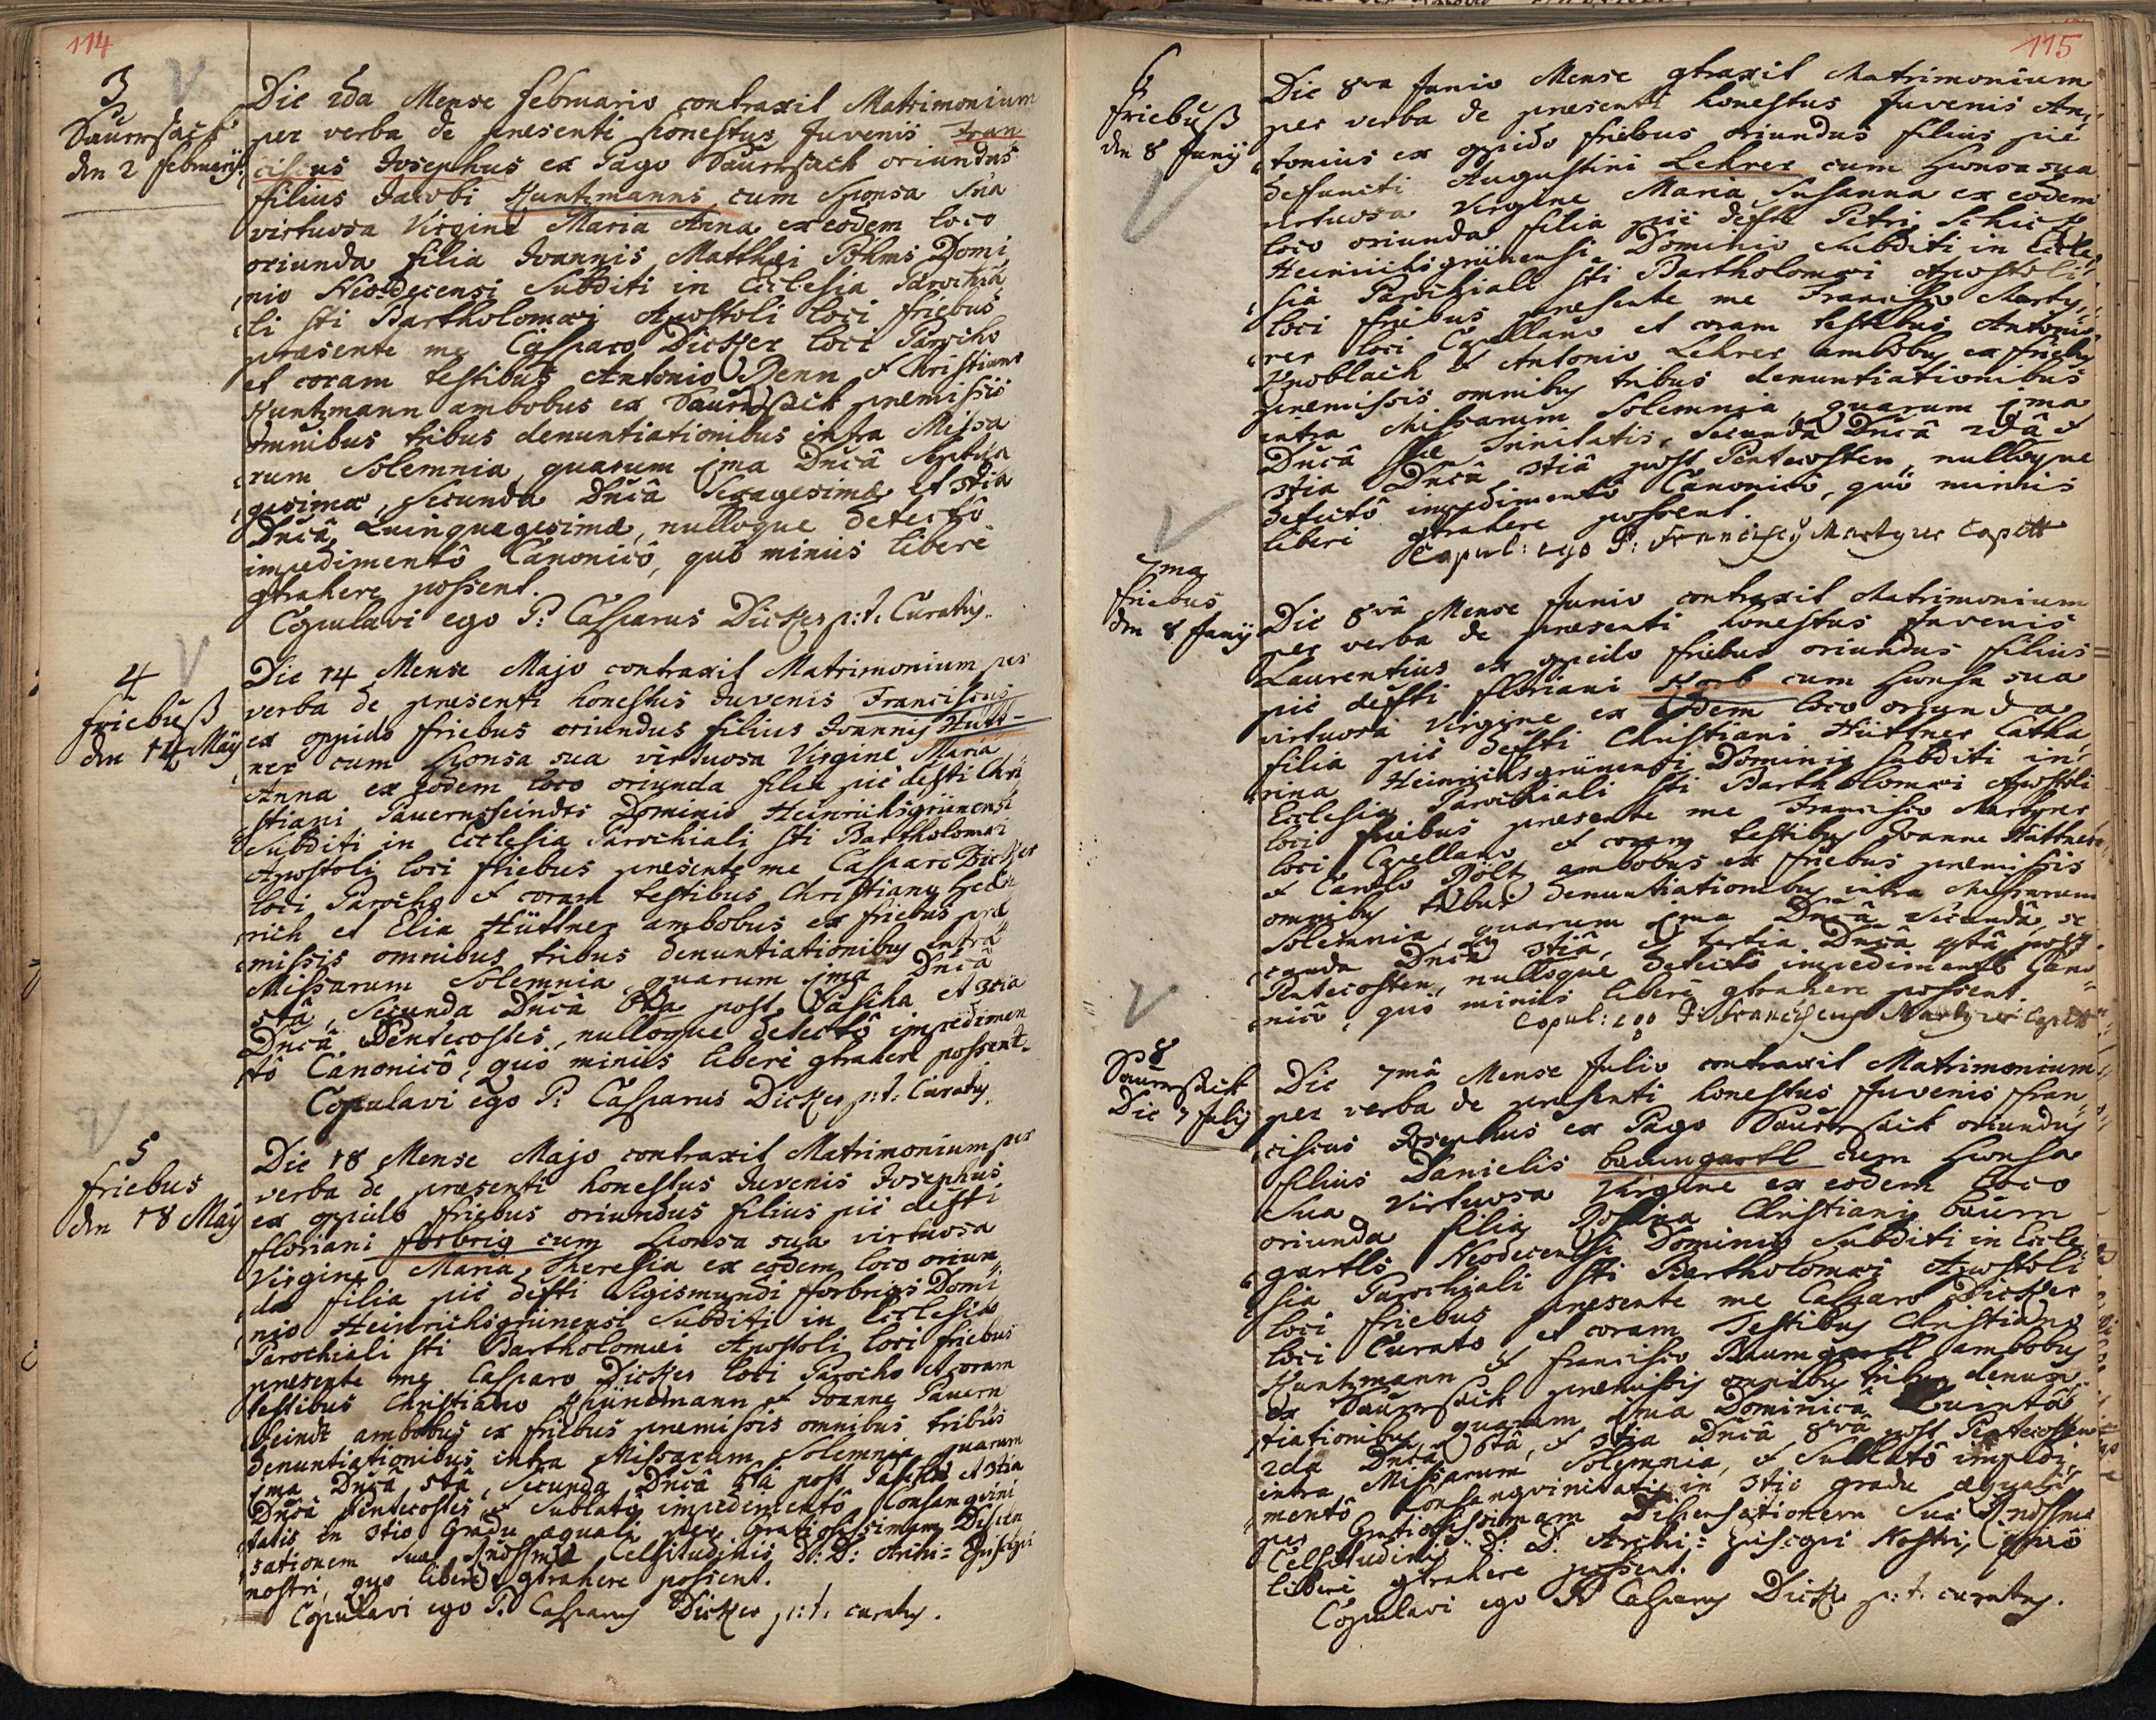 114
3
Saurrsack
den 2 februarij
Die 2da Mense februario contraxit Matrimonium
per verba de presenti honestus Juvenis Fran
ciscus Josephus ex Pago Saurrsack oriundus
filius Jacobi Kuntzmanns cum Sponsa Sua
virtuosa Virgine Maria Anna ex eodem loco
oriunda filia Joannis Matthæi Pöhms Domi
nio Neodecensi Subditi in Ecclesia Parochia
li Sti Bartholomæi Apostoli loci friebus
præsente me Casparo Dicker loci Parocho
et coram testibus Antonio Renn et Christiano
Kuntzmann ambobus ex Saurrsack premissis
omnibus tribus denuntiationibus intra Missa
rum Solemnia, quarum 1ma Dnicâ Septua
gesimæ, Secunda Dnicâ Sexagesimæ et 3tia
Dnicâ Quinquagesimæ, nulloque detectô
impedimentô Canonicô, quô minus liberè
gtrahere possent.
Copulavi ego P: Casparus Dicker p:t: Curatus.
4
friebuß
den 14 Maÿ
Die 14 Mense Majo contraxit Matrimonium per
verba de presenti honestus Juvenis Franciscus
ex oppido friebus oriundus filius Joannis Hütt-
ner cum Sponsa sua virtuosa Virgine Maria
Anna ex eodem loco oriunda filia piè defti Chri
stiani Pauernfeindts Dominio Heinrichsgrünensi
Subditi in Ecclesia Parochiali Sti Bartholomæi
Apostoli loci friebus presente me Casparo Dicker
loci Parocho et coram testibus Christiano Hein
rich et Elia Hüttner ambobus ex friebus præ
missis omnibus tribus denuntiationibus intra
Missarum Solemnia, quarum 1ma Dnicâ
5tâ, Secunda Dnicâ 6ta post Pascha et 3tia
Dnicâ Pentecostes, nulloque detectô impedimen
tô Canonicô, quô minus liberè gtrahere possent.
Copulavi ego P: Casparus Dicker p:t: Curatus.
5
friebus
den 18 Maÿ
Die 18 Mense Majo contraxit Matrimonium per
verba de præsenti honestus Juvenis Josephus
ex oppido friebus oriundus filius piè defti
floriani forbrig cum Sponsa sua virtuosa
Virgine Maria Theresia ex eodem loco oriun
da filia piè defti Sigismundi fforbrigs Domi
nio Heinrichsgrünensi Subditi in Ecclesia
Parochiali Sti Bartholomæi Apostoli loci friebus
presente me Casparo Dicker loci Parocho et coram
testibus Christiano et Joanne Pauern
feindt ambobus ex friebus premissis omnibus tribus
denuntiationibus intra Missarum Solemnia quarum
1ma Dnicâ 5tâ, Secunda Dnicâ 6tâ post Pascha et 3tia
Dnicâ Pentecostes, et Sublatô impedimentô Consangvini
tatis in 3tio Gradu æquali per Gratiosissimam Dispen
sationem Suæ Rndssmæ Celsitudinis D: D: Archi- Episcopi
nostri, quo liberè gtrahere possent.
Copulavi ego P. Casparus Dicker p:t: curatus.
115
6
friebuß
den 8 Junij
Die 8va Junio Mense gtraxit Matrimonium
per verba de præsenti honestus Juvenis An
tonius ex oppido friebus oriundus filius piè
defuncti Augustini Lehrer cum Sponsa sua
virtuosa Virgine Maria Susanna ex eodem
loco oriunda filia piè defti Petri Schick
Heinrichsgrünensi Dominio Subditi in Eccle
sia Parochiali Sti Bartholomæi Apostoli
loci friebus præsente me Francisco Marty
rer loci Capellano et coram testibus Antonio
Knoblach et Antonio Lehrer ambobus ex friebus
premissis omnibus tribus denuntiationibus
intra Missarum Solemnia, quarum 1ma
Dnicâ SSæ Trinitatis, Secunda Dnicâ 2dâ et
3tia Dnicâ 3tiâ post Pentecosten, nulloque
detectô impedimentô Canonicô, quô minus
liberè gtrahere possent.
Copul: ego P: Franciscus Martyrer Capell
7ma
friebus
den 8 Junij
Die 8vâ Mense Junio contraxit Matrimonium
per verba de præsenti honestus Juvenis
Laurentius ex oppido friebus oriundus filius
piè defti floriani Korb cum Sponsa sua
virtuosa Virgine ex eodem loco oriunda
filia piè defti Christiani Hüttner Catha
rina Heinrichsgrünensi Dominio Subditi in
Ecclesia Parochiali Sti Bartholomæi Apostoli
loci friebus presente me Francisco Martyrer
loci Capellano et coram testibus Joanne Hüttner
et Carolo Pöltz ambobus ex friebus premissis
omnibus tribus denuntiationibus intra Missarum
Solemnia, quarum 1ma Dnicâ Secundâ, se
cunda Dnicâ 3tiâ, et tertia Dnicâ 4tâ post
Pentecosten, nulloque detectô impedimentô Cano
nicô, quô minus liberè gtrahere possent.
Copul: ego P. Franciscus Martyrer Capell
8
Saurrsack
Die 7 Julij
Die 7mâ Mense Julio contraxit Matrimonium
per verba de presenti honestus Juvenis Fran
ciscus Josephus ex Pago Saurrsack oriundus
filius Danielis baumgartl cum Sponsa
Sua Virtuosa Virgine ex eodem loco
oriunda filia Rosina Christiani baum
gartls Neodecensi Dominio Subditi in Eccle
sia Parochiali Sti Bartholomæi Apostoli
loci friebus præsente me Casparo Dicker
loci Curato et coram Testibus Christiano
Kuntzmann et francisco Baumgartl ambobus
ex Saurrsack premissis omnibus tribus denun
tiationibus, quarum 1ma Dominicâ Quintâ
2da Dnicâ 6tâ, et 3tia Dnicâ 8vâ post Pentecosten
intra Missarum Solemnia, et Sublatô impedi
mentô Consangvinitatis in 3tio gradu æquali
per Gratiosissimam Dispensationem Suæ Rndssmæ
Celsitudinis D: D: Archi- Episcopi Nostri, quo
liberè gtrahere possent.
Copulavi ego P Casparus Dicker p:t: curatus.